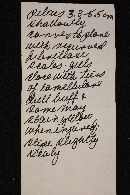 Pileus 3.3-5.5 cm
Shallowly
convex to plane
with recurved
scales. Gills
close with tiers
of lamellulae
Buff buff &
Some may
stain yellow
when injured.
Stipe slightly
scaly